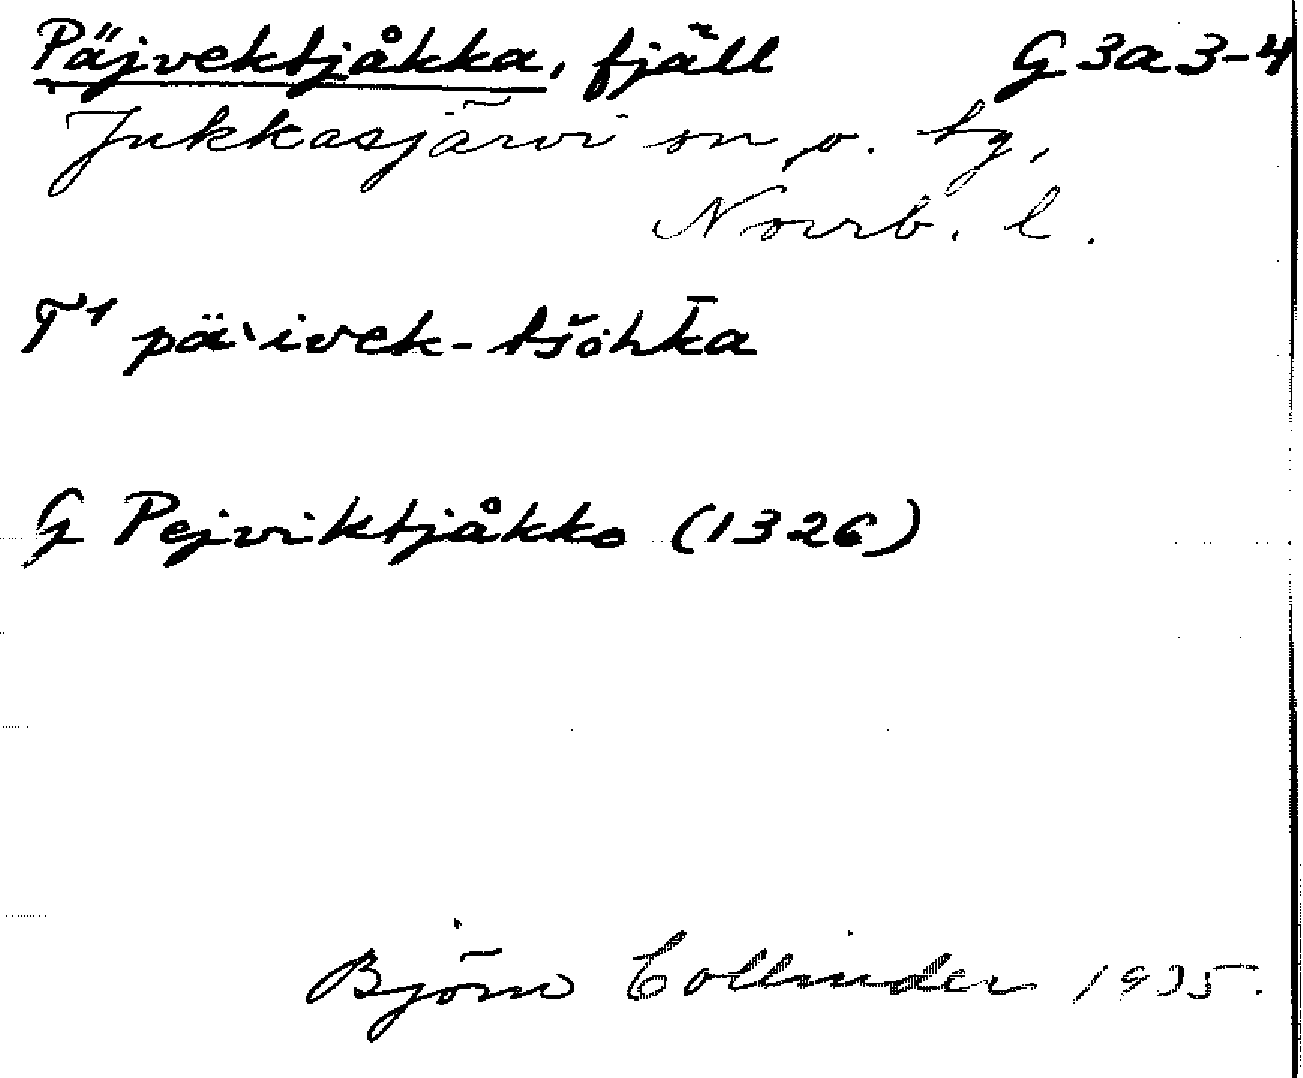 Päjvektjåkka, fjäll G 3a 3-4
Jukkasjärvi sn o. tg,
Norrb. l.
T¹ pä`ivek-tšöhk̄a
G Pejviktjåkko (1326)
Björn Collinder 1935.